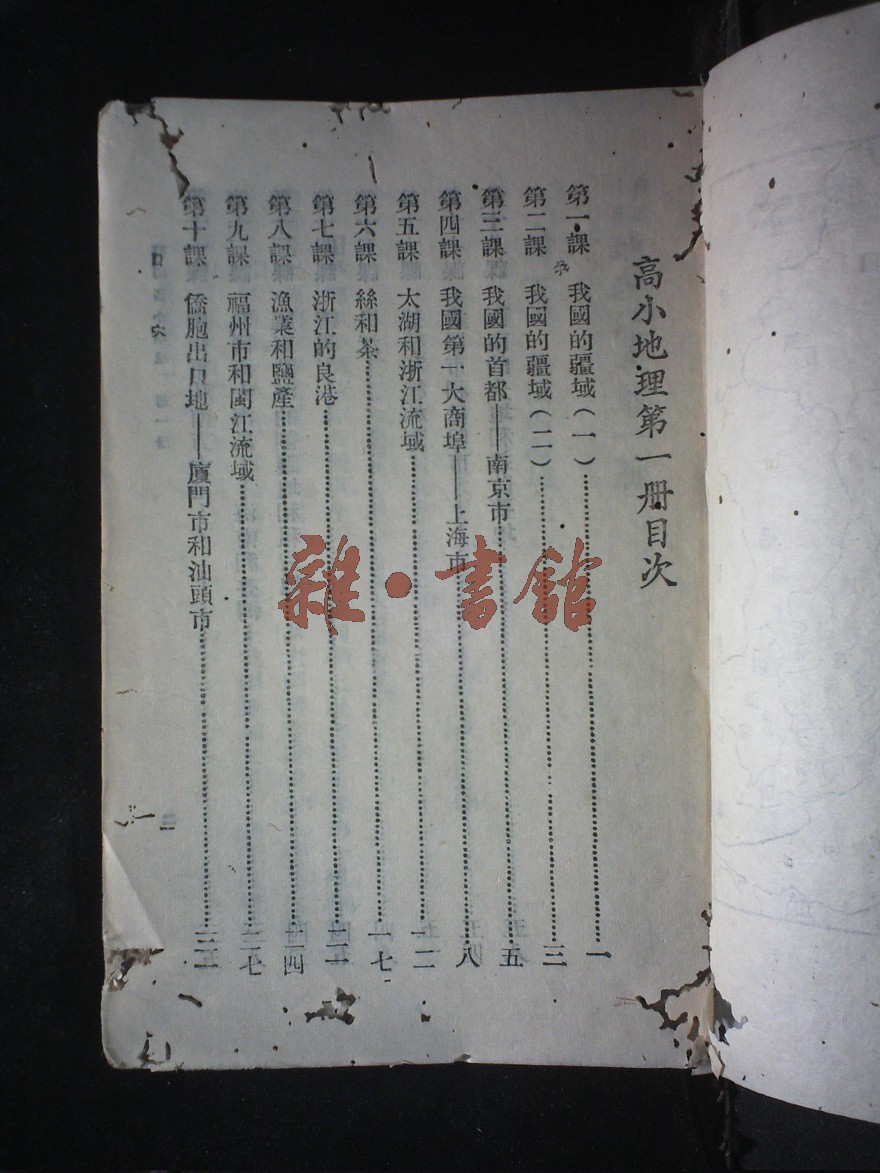 高小地理第一册目次
第一課 我國的疆域(一)……一
第二課 我國的疆域(二)……三
第三課 我國的首都——南京市……五
第四課 我國第一大商埠——上海市……八
第五課 太湖和浙江流域……一二
第六課 絲和茶……一七
第七課 浙江的良港……二一
第八課 漁業和鹽產……二四
第九課 福州市和閩江流域……二七
第十課 僑胞出口地——廈門市和汕頭市……三一
雜·書館